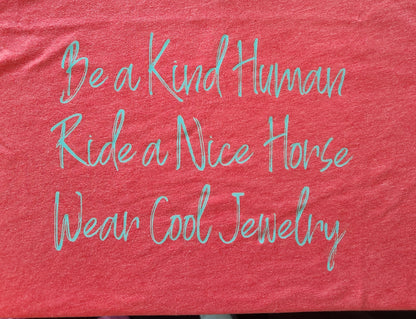 Be a Kind Human
Ride a Nice Horse
Wear Cool Jewelry